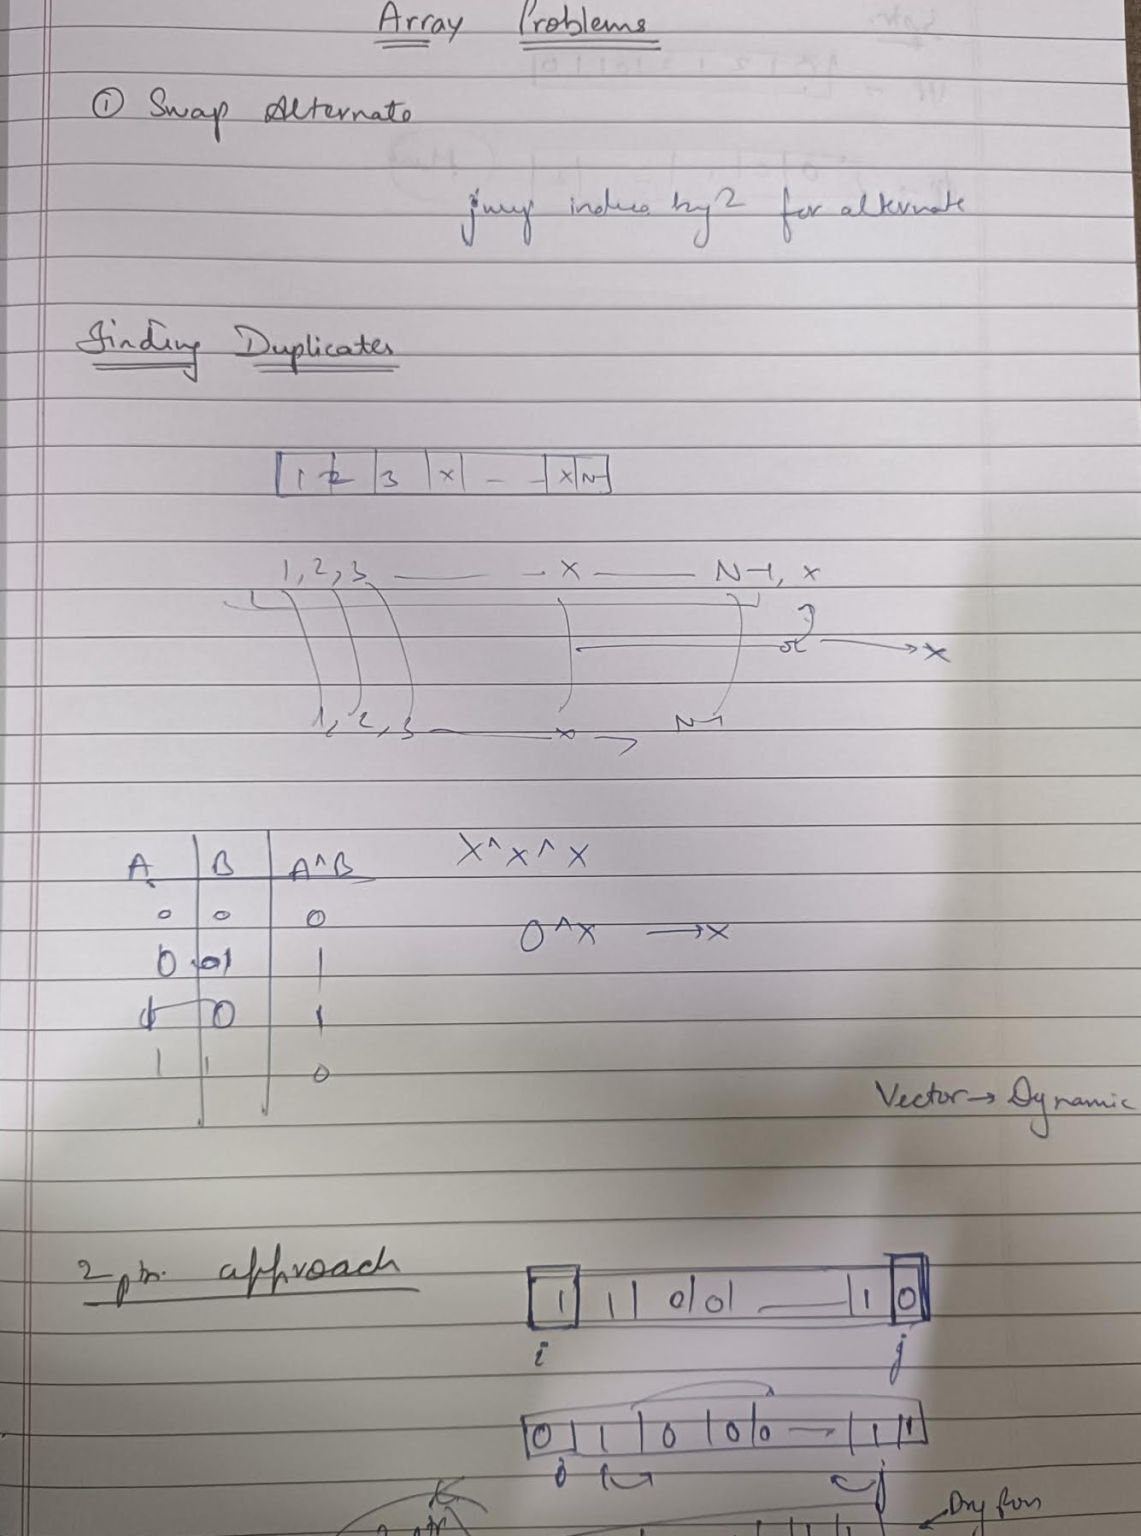 Array Problems
① Swap Alternate
jump index by 2 for alternate
Finding Duplicates
1 2 3 x - - x N-1
1, 2, 3 - x N-1, x
x
1, 2, 3 x N-1
A B A^B X^x^x
0 0 0
0^x → x
0 1 1
1 0 1
1 1 0
Vector → Dynamic
2 ptr. approach
1 1 0 0 1 0
i j
0 1 0 0 0 1 1
i j
Dry Run